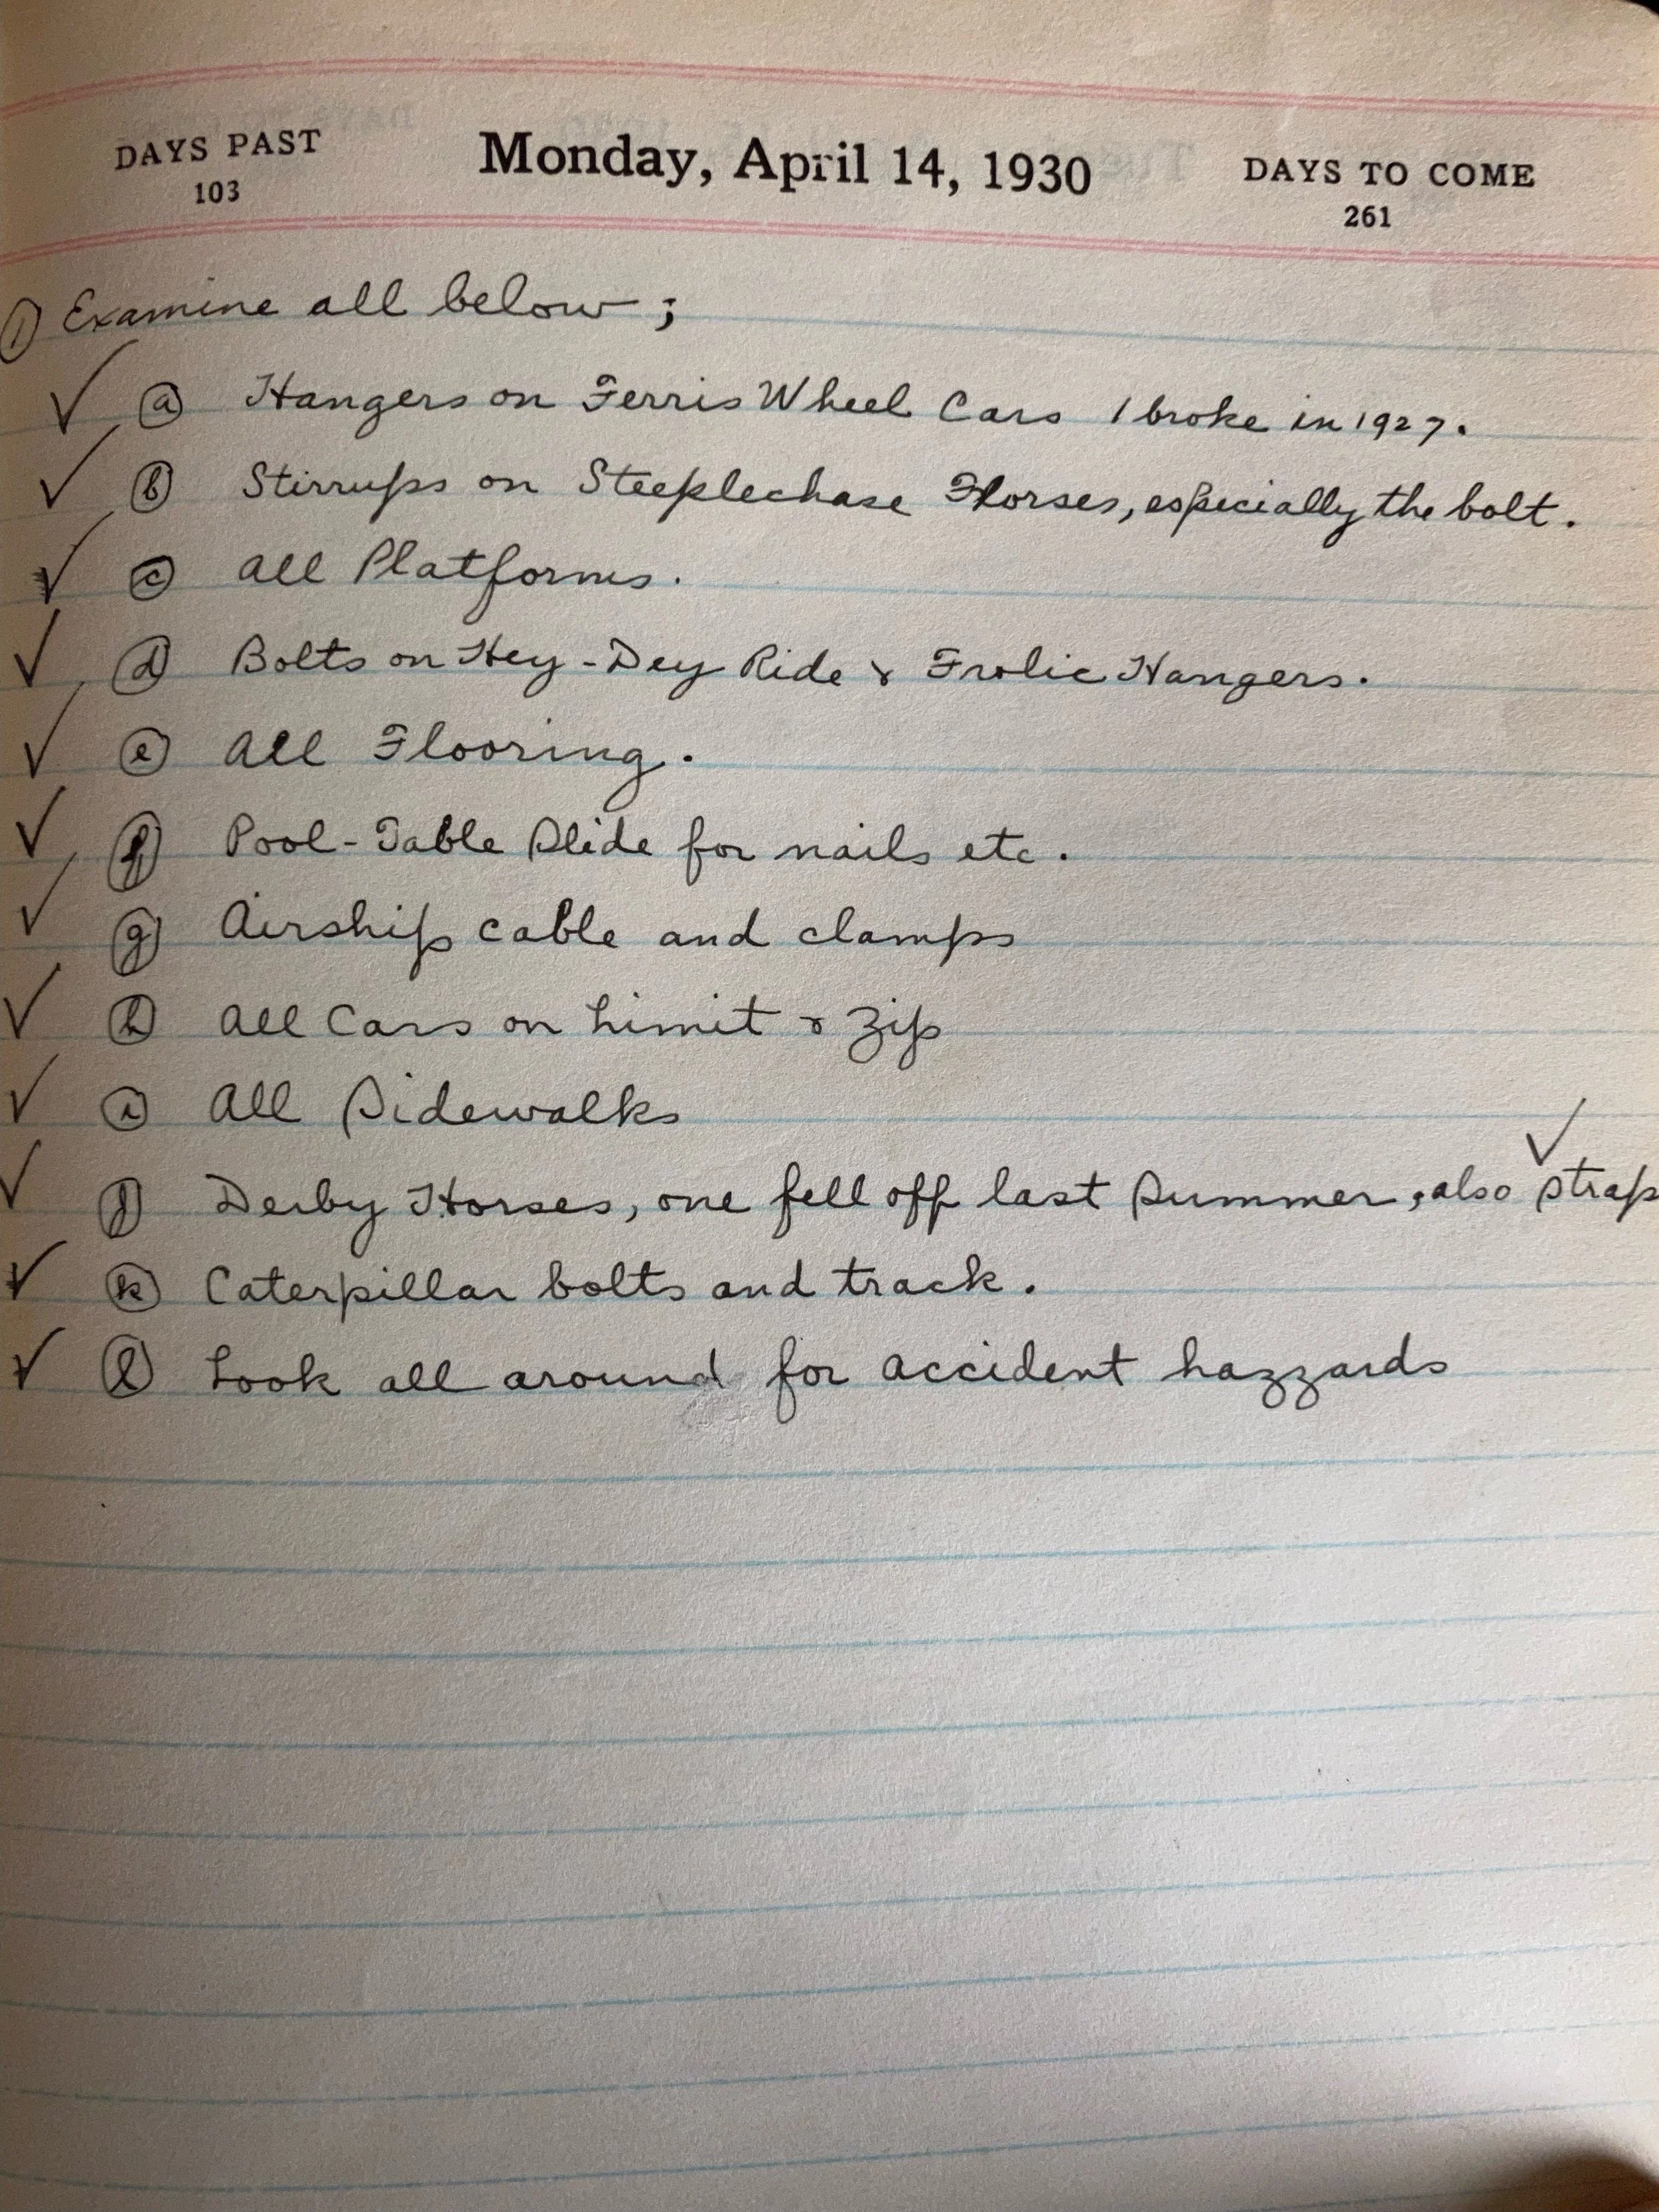 DAYS PAST Monday, April 14, 1930 DAYS TO COME
103 261
① Examine all below;
✓ ⓐ Hangers on Ferris Wheel Cars 1 broke in 1927.
✓ ⓑ Stirrups on Steeplechase Horses, especially the bolt.
✓ ⓒ All Platforms.
✓ ⓓ Bolts on Hey-Dey Ride & Frolic Hangers.
✓ ⓔ All Flooring.
✓ ⓕ Pool-Table Slide for nails etc.
✓ ⓖ Airship cable and clamps
✓ ⓗ All Cars on Limit & Zip
✓ ⓘ All Sidewalks
✓ ⓙ Derby Horses, one fell off last Summer, also ✓ strap
✓ ⓚ Caterpillar bolts and track.
✓ ⓛ Look all around for accident hazzards